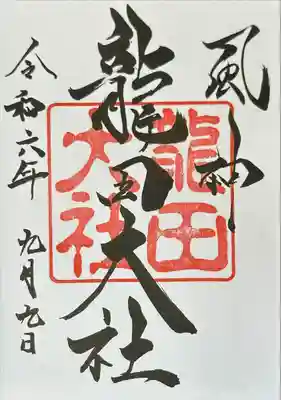 風神
龍田大社
龍田大社
令和六年 九月九日